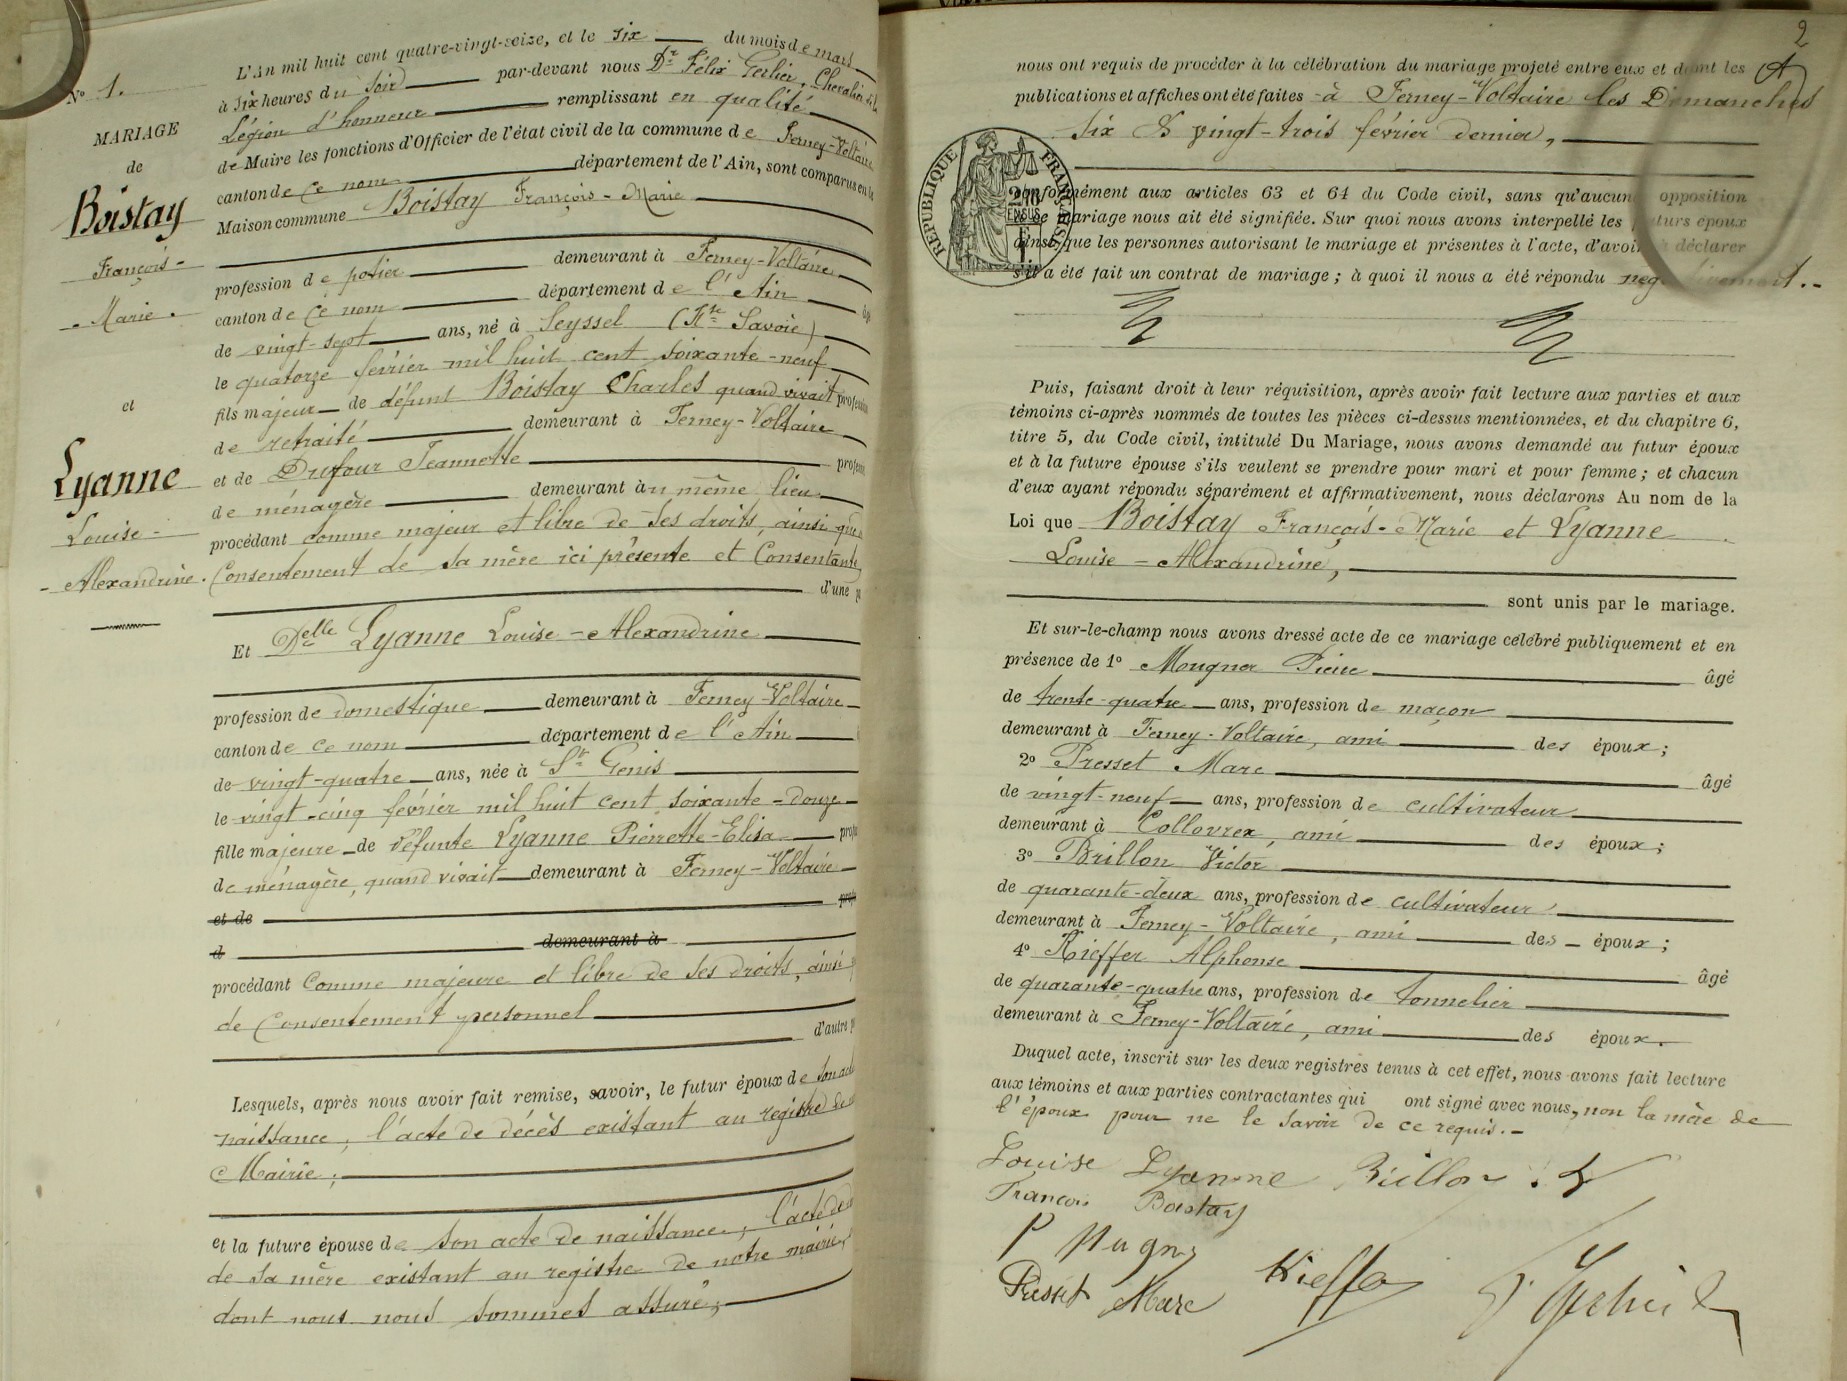 N° 1.
MARIAGE
de
Boistay
François-
Marie.
et
Lyanne
Louise-
Alexandrine.
L'An mil huit cent quatre-vingt-seize, et le six du mois de mars
à six heures du soir par-devant nous Dr Félix Gerlier, Chevalier de la
Légion d'honneur remplissant en qualité
de Maire les fonctions d'Officier de l'état civil de la commune de Ferney-Voltaire
canton de ce nom département de l'Ain, sont comparus en la
Maison commune Boistay François-Marie
profession de potier demeurant à Ferney-Voltaire
canton de ce nom département de l'Ain
de vingt-sept ans, né à Seyssel (Hte Savoie)
le quatorze février mil huit cent soixante-neuf
fils majeur de défunt Boistay Charles quand vivait
de retraité demeurant à Ferney-Voltaire
et de Dufour Jeannette
de ménagère demeurant au même lieu
procédant comme majeur et libre de ses droits, ainsi que
Consentement de sa mère ici présente et Consentante,
d'une
Et Delle Lyanne Louise-Alexandrine
profession de domestique demeurant à Ferney-Voltaire
canton de ce nom département de l'Ain
de vingt-quatre ans, née à St Genis
le vingt-cinq février mil huit cent soixante-douze
fille majeure de défunte Lyanne Pierrette-Elisa
de ménagère, quand vivait demeurant à Ferney-Voltaire
et de
d demeurant à
procédant Comme majeure et libre de ses droits, ainsi
de Consentement personnel
d'autre
Lesquels, après nous avoir fait remise, savoir, le futur époux de son acte
naissance; l'acte de décès existant au registre de
Mairie;
et la future épouse de son acte de naissance; l'acte de
de sa mère existant au registre de notre mairie,
dont nous nous sommes assuré;
2
nous ont requis de procéder à la célébration du mariage projeté entre eux et dont les
publications et affiches ont été faites à Ferney-Voltaire les Dimanches
six & vingt-trois février dernier,
RÉPUBLIQUE FRANÇAISE
conformément aux articles 63 et 64 du Code civil, sans qu'aucune opposition
mariage nous ait été signifiée. Sur quoi nous avons interpellé les futurs époux
ainsi que les personnes autorisant le mariage et présentes à l'acte, d'avoir à déclarer
s'il a été fait un contrat de mariage; à quoi il nous a été répondu négativement.
Puis, faisant droit à leur réquisition, après avoir fait lecture aux parties et aux
témoins ci-après nommés de toutes les pièces ci-dessus mentionnées, et du chapitre 6,
titre 5, du Code civil, intitulé Du Mariage, nous avons demandé au futur époux
et à la future épouse s'ils veulent se prendre pour mari et pour femme; et chacun
d'eux ayant répondu séparément et affirmativement, nous déclarons Au nom de la
Loi que Boistay François-Marie et Lyanne
Louise-Alexandrine,
sont unis par le mariage.
Et sur-le-champ nous avons dressé acte de ce mariage célébré publiquement et en
présence de 1° Mougner Pierre âgé
de trente-quatre ans, profession de maçon
demeurant à Ferney-Voltaire, ami des époux;
2° Presset Marc âgé
de vingt-neuf ans, profession de cultivateur
demeurant à Collovrex, ami des époux;
3° Brillon Victor
de quarante-deux ans, profession de cultivateur
demeurant à Ferney-Voltaire, ami des époux;
4° Kieffer Alphonse âgé
de quarante-quatre ans, profession de tonnelier
demeurant à Ferney-Voltaire, ami des époux.
Duquel acte, inscrit sur les deux registres tenus à cet effet, nous avons fait lecture
aux témoins et aux parties contractantes qui ont signé avec nous, non la mère de
l'époux pour ne le savoir de ce requis.
Louise Lyanne Brillon
François Boistay
Presset Marc Kieffer